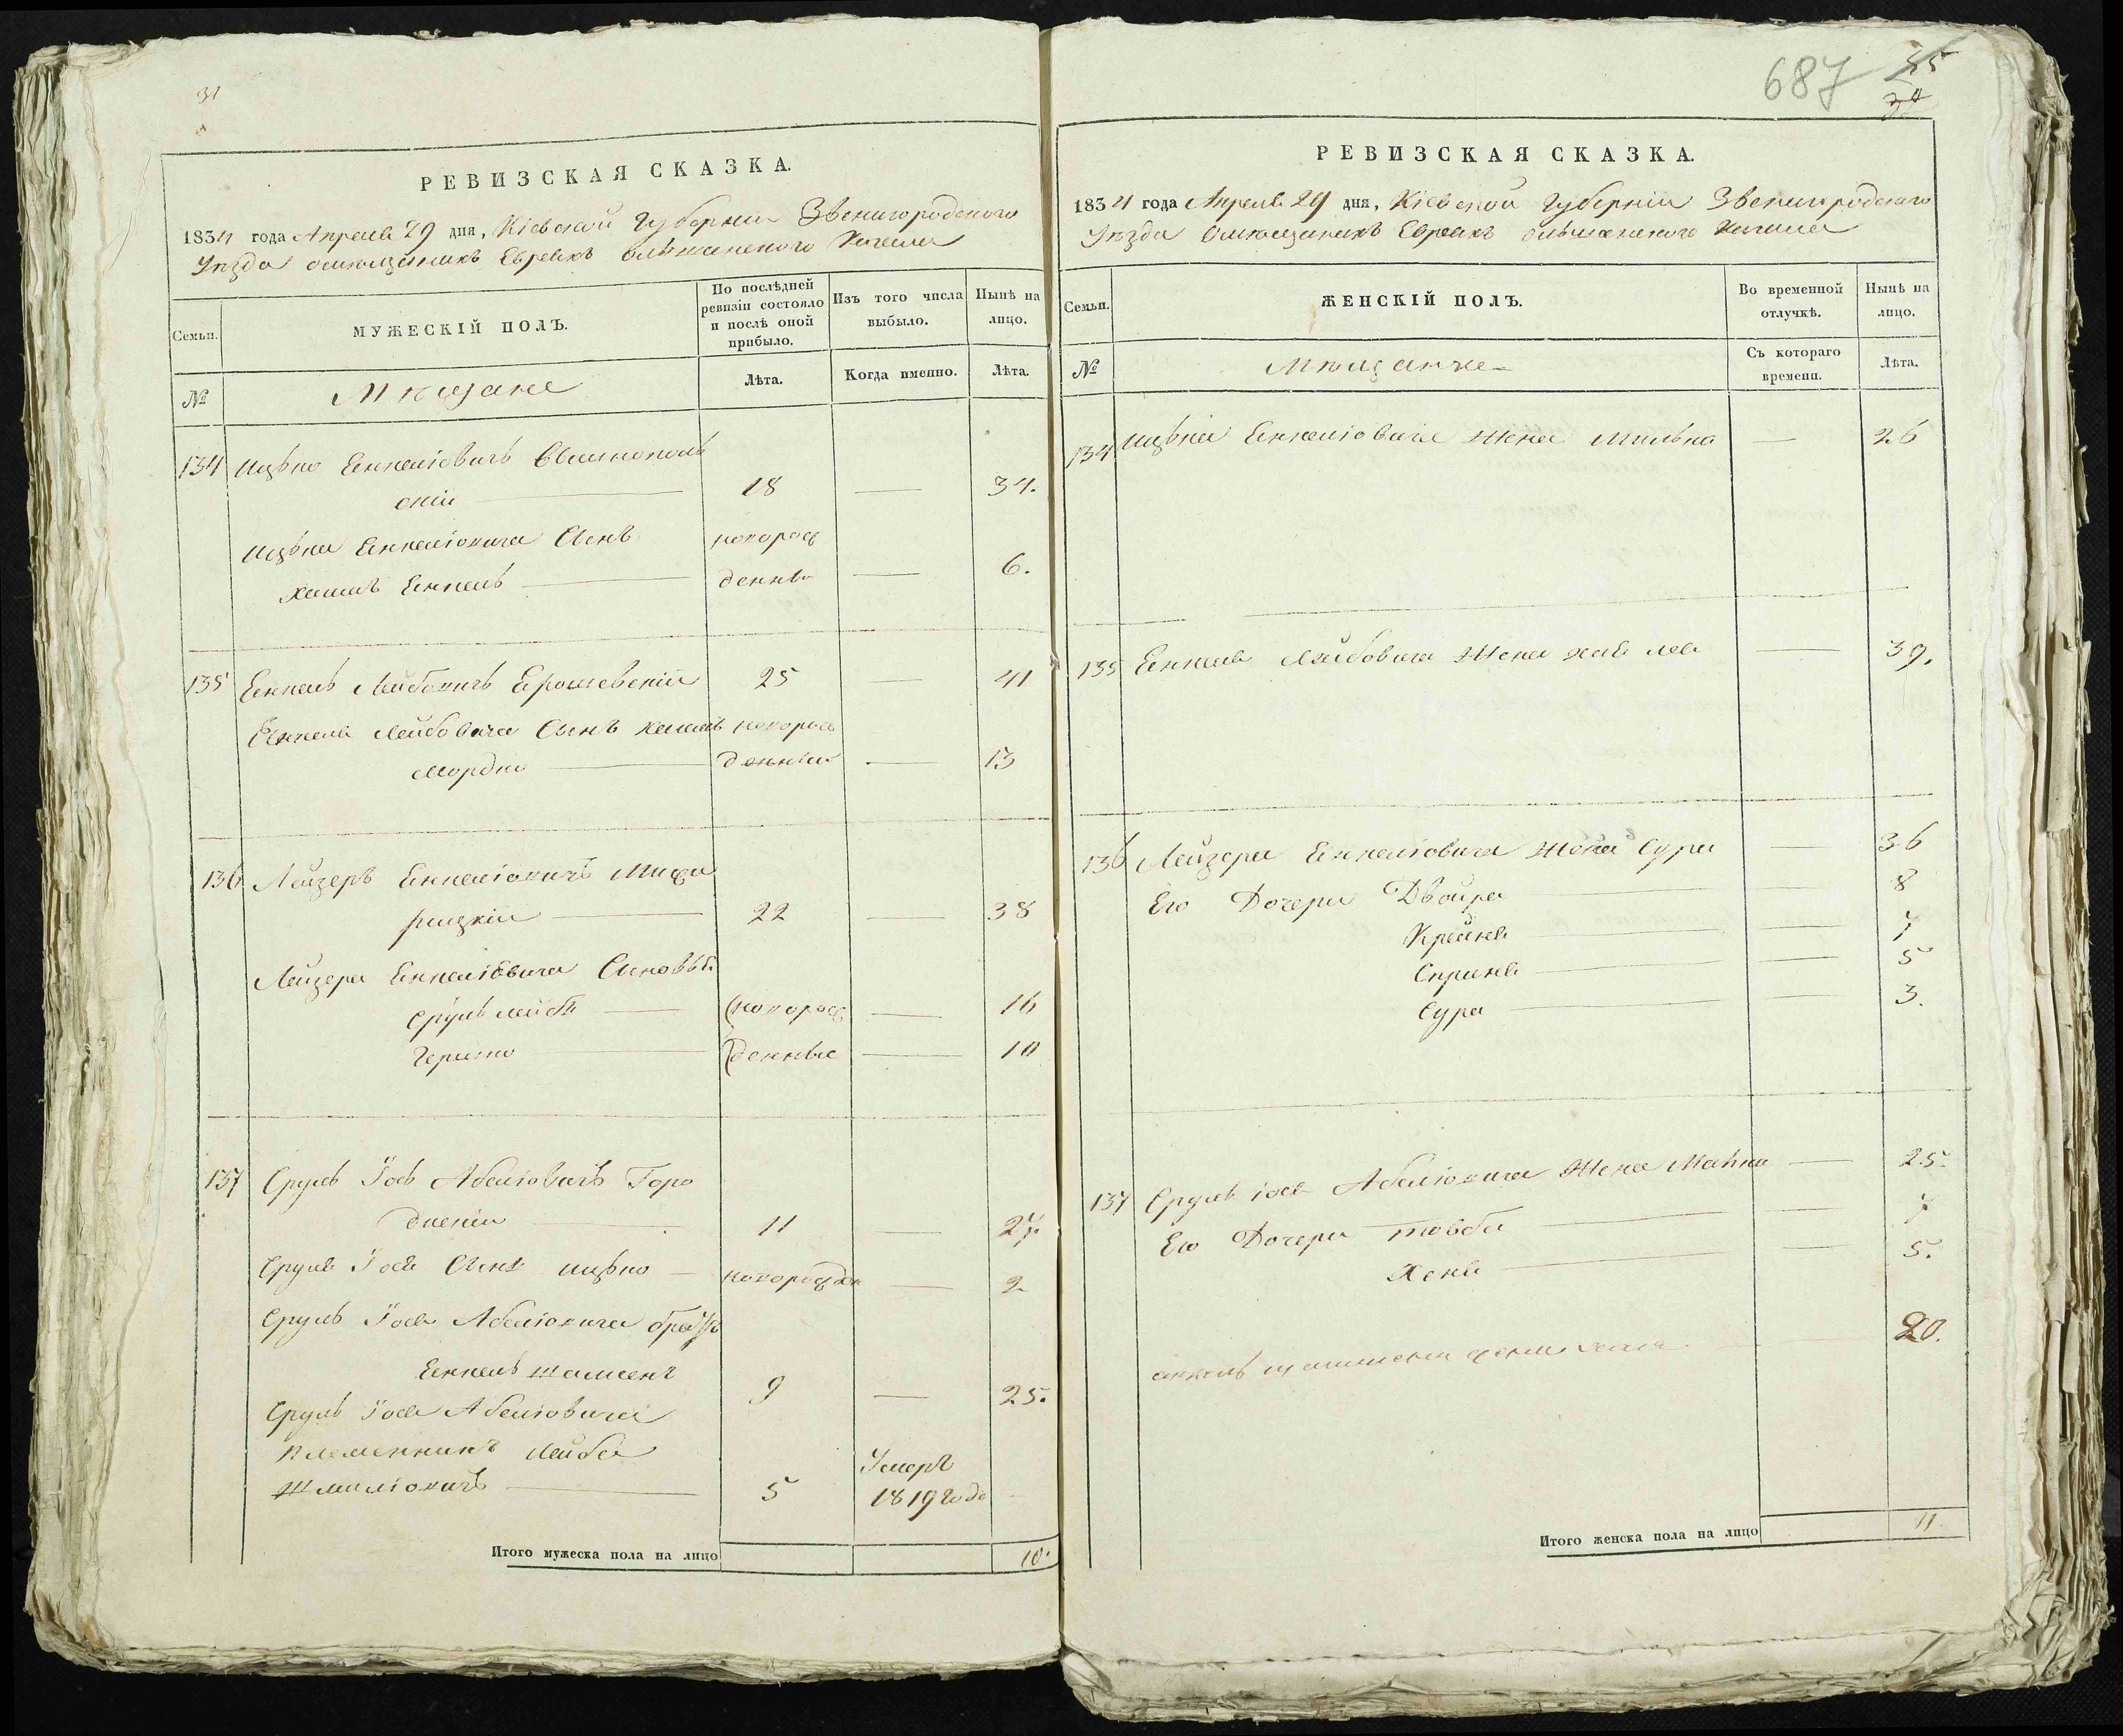 31
РЕВИЗСКАЯ СКАЗКА.
1834 года Апреля 29 дня, Кіевской Губерніи Звенигородского
Уезда о мещанинахъ Евреяхъ Ольшанского Кагала
Семьи.
МУЖЕСКІЙ ПОЛЪ.
По послѣдней ревизіи состояло и послѣ оной прибыло.
Изъ того числа выбыло.
Нынѣ на лицо.
№
Мещане
Лѣта.
Когда именно.
Лѣта.
134 Ицько Янкеліовичъ
скій 18 — 34.
Ицька Янкеліовича Сынъ новорож
Хаимъ Янкель денны — 6.
135 Янкель Лейбовичъ 25 — 41
Янкеля Лейбовича Сынъ Хаимъ новорож
Мордко денный — 13
136 Лейзеръ Янкеліовичъ
рицкій 22 — 38
Лейзера Янкеліовича Сыновья
Сруль Лейба новорож — 16
Гершко денные — 10
137 Сруль Іось Абеліовичъ Горо
дискій 11 — 27.
Сруля Іося Сынъ Ицько — новорожден — 2
Сруль Іося Абеліовича братъ
Янкель 9 — 25.
Сруль Іося Абеліовича
племенникъ Лейба Умеръ
Шмиліовичъ 5 1819 года
Итого мужеска пола на лицо 10.
687 55
30
РЕВИЗСКАЯ СКАЗКА.
1834 года Апреля 29 дня, Кіевской Губерніи Звенигородского
Уезда о мещанинахъ Евреяхъ Ольшанского Кагала
Семьи.
ЖЕНСКІЙ ПОЛЪ.
Во временной отлучкѣ.
Нынѣ на лицо.
№
Мещанки
Съ котораго времени.
Лѣта.
134 Ицька Янкеліовича Жена Милька — 26
135 Янкеля Лейбовича Жена Хая Лея — 39.
136 Лейзера Янкеліовича Жена Сура — 36
Его Дочери Двойра — 8
Крейня — 7
Сприня — 5
Сура — 3.
137 Сруль Іося Абеліовича Жена — 25.
Его Дочери Товба — 7
Хеня — 5.
жена — 20.
Итого женска пола на лицо 11.